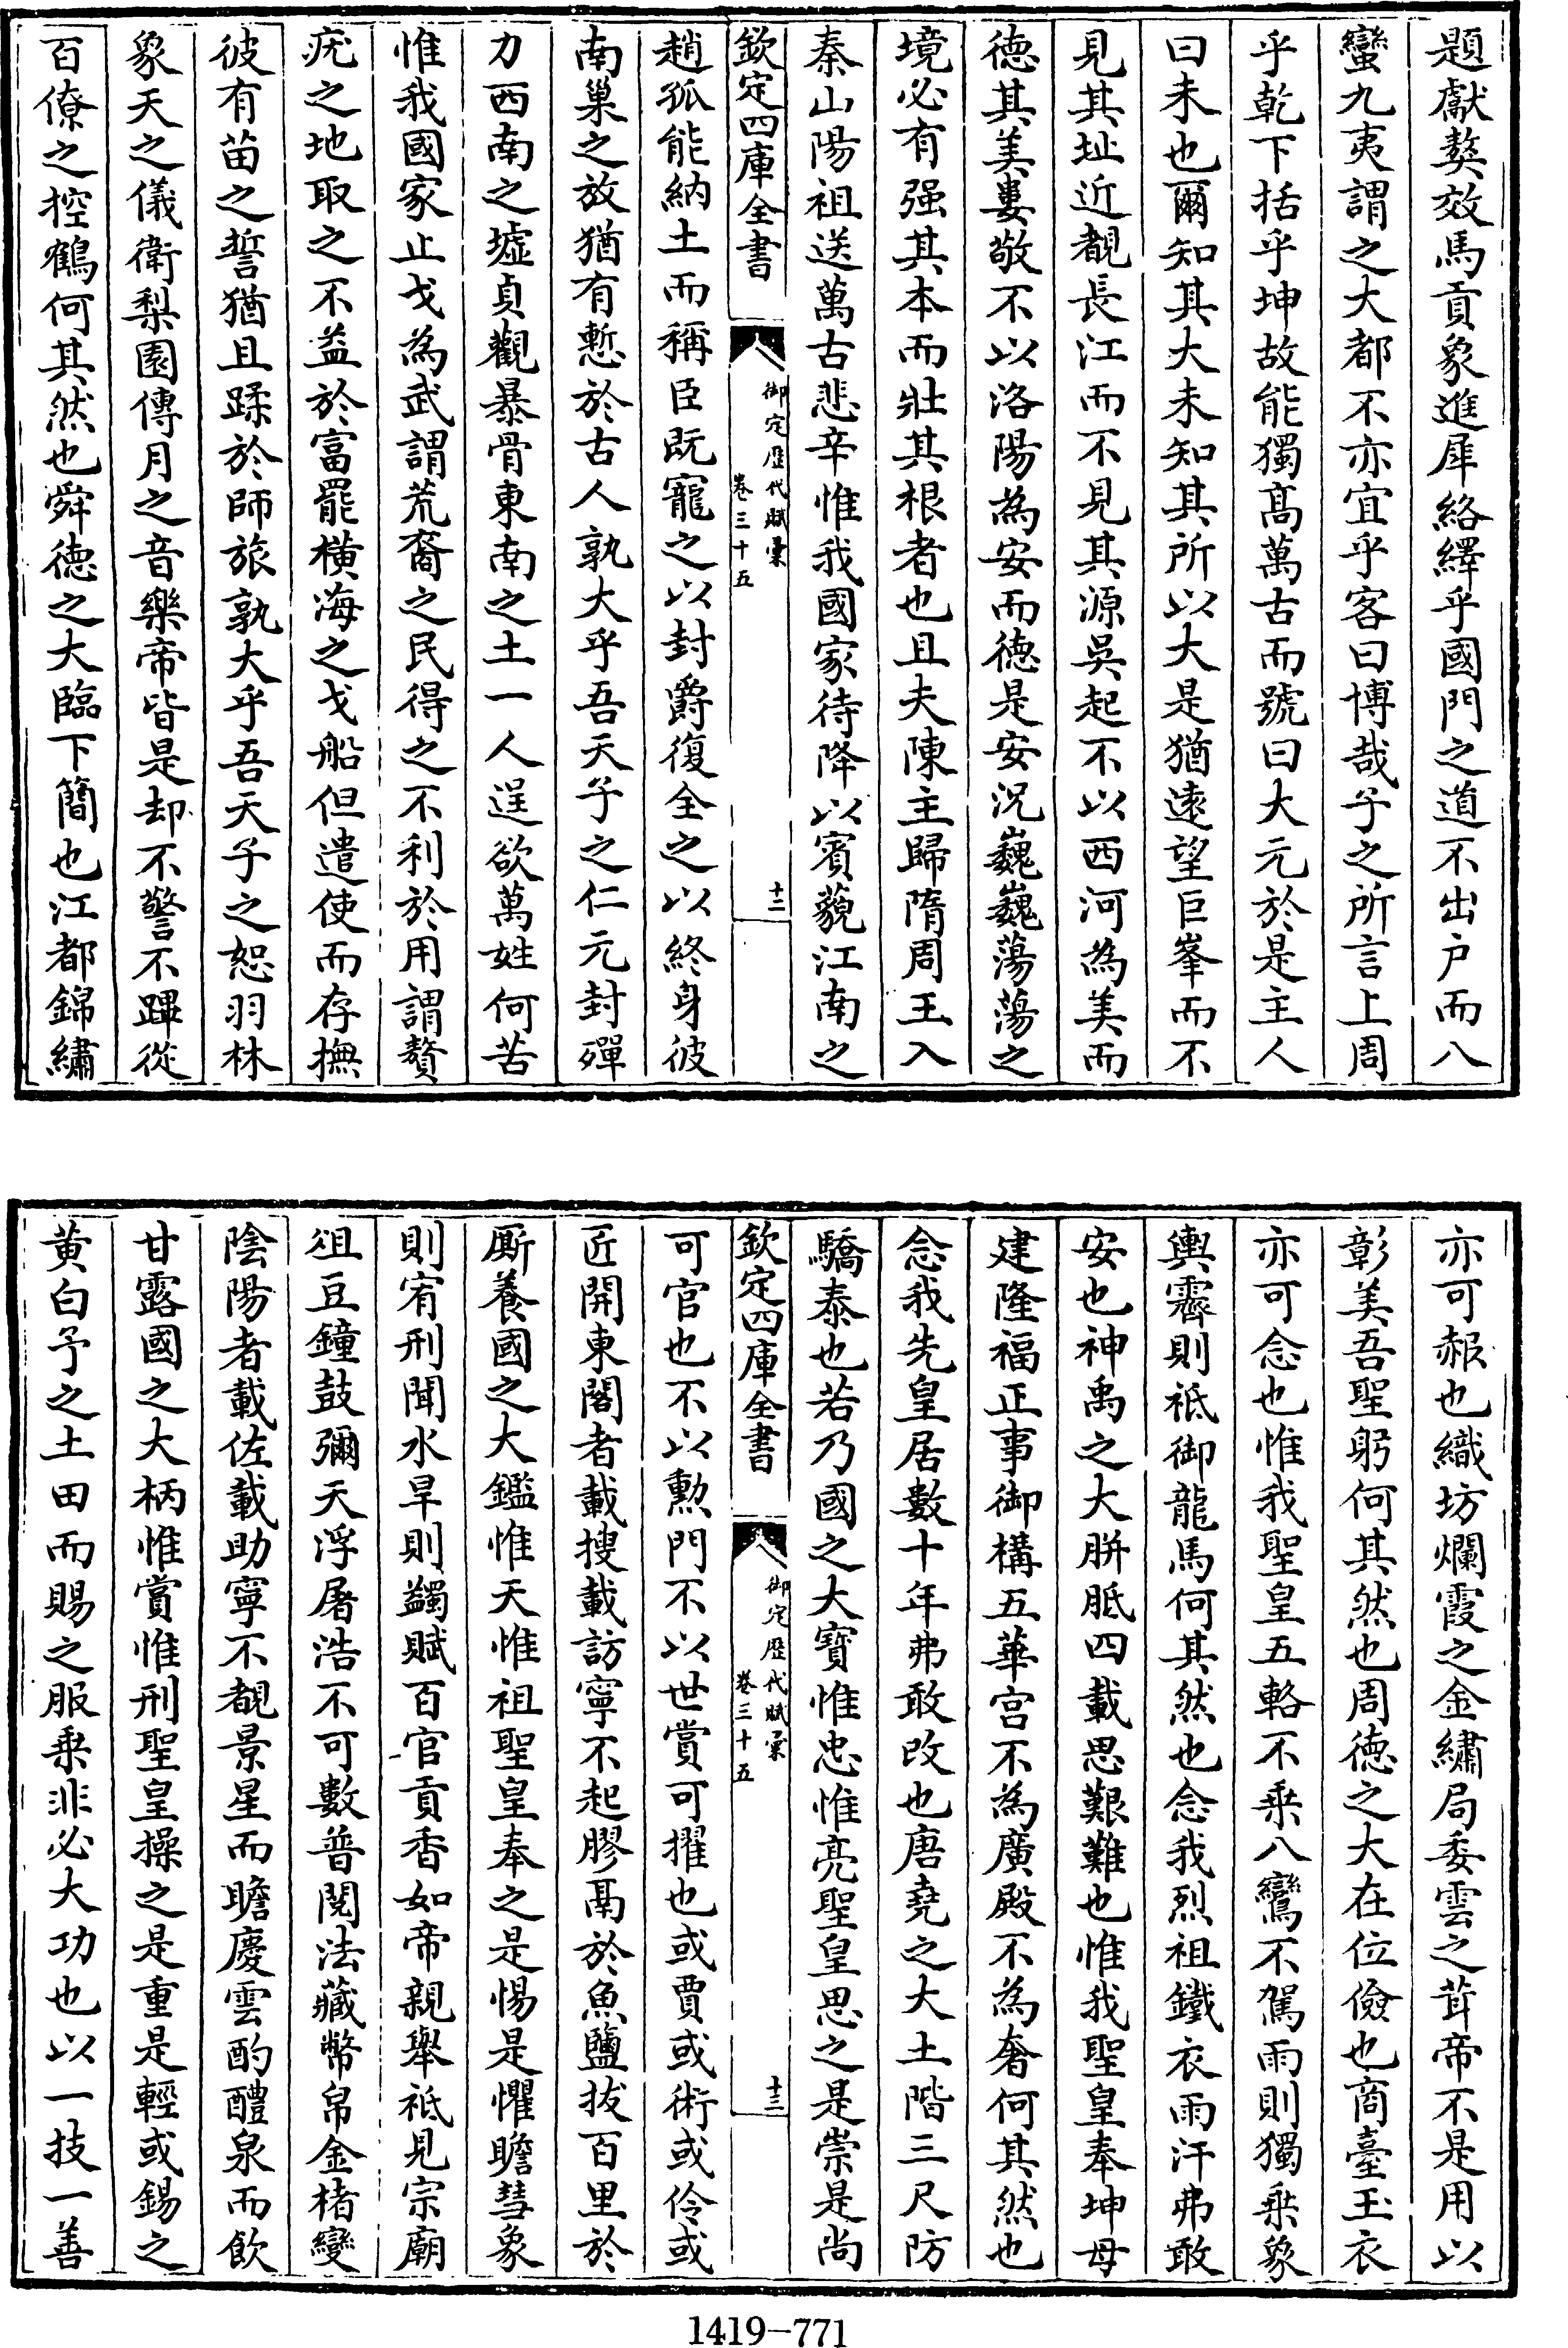 題獻獒效馬貢象進犀絡繹乎國門之道不出户而八
蠻九夷謂之大都不亦宜乎客曰博哉子之所言上周
乎乾下括乎坤故能獨髙萬古而號曰大元於是主人
曰未也爾知其大未知其所以大是猶遠望巨峯而不
見其址近覩長江而不見其源吳起不以西河為美而
德其美婁敬不以洛陽為安而德是安况巍巍蕩蕩之
境必有强其本而壯其根者也且夫陳主歸隋周王入
秦山陽祖送萬古悲辛惟我國家待降以賓藐江南之
欽定四庫全書
御定歷代賦彙
卷三十五
十二
趙孤能納土而稱臣既寵之以封爵復全之以終身彼
南巢之放猶有慙於古人孰大乎吾天子之仁元封殫
力西南之墟貞觀暴骨東南之土一人逞欲萬姓何苦
惟我國家止戈為武謂荒裔之民得之不利於用謂贅
疣之地取之不益於富罷橫海之戈船但遣使而存撫
彼有苗之誓猶且蹂於師旅孰大乎吾天子之恕羽林
象天之儀衛梨園傳月之音樂帝皆是却不警不蹕從
百僚之控鶴何其然也舜德之大臨下簡也江都錦繡
亦可赧也織坊爛霞之金繡局委雲之茸帝不是用以
彰美吾聖躬何其然也周德之大在位儉也商臺玉衣
亦可念也惟我聖皇五輅不乗八鸞不駕雨則獨乗象
輿霽則祗御龍馬何其然也念我烈祖鐵衣雨汗弗敢
安也神禹之大胼胝四載思艱難也惟我聖皇奉坤母
建隆福正事御構五華宫不為廣殿不為奢何其然也
念我先皇居數十年弗敢改也唐堯之大土階三尺防
驕泰也若乃國之大寶惟忠惟亮聖皇思之是崇是尚
欽定四庫全書
御定歷代賦彙
卷三十五
十三
可官也不以勲門不以世賞可擢也或賈或術或伶或
匠開東閣者載搜載訪寧不起膠鬲於魚鹽拔百里於
厮養國之大鑑惟天惟祖聖皇奉之是惕是懼瞻彗象
則宥刑聞水旱則蠲賦百官貢香如帝親舉祗見宗廟
俎豆鐘鼓彌天浮屠浩不可數普閱法藏幣帛金楮變
陰陽者載佐載助寧不覩景星而瞻慶雲酌醴泉而飲
甘露國之大柄惟賞惟刑聖皇操之是重是輕或錫之
黄白予之土田而賜之服乗非必大功也以一技一善
1419-771